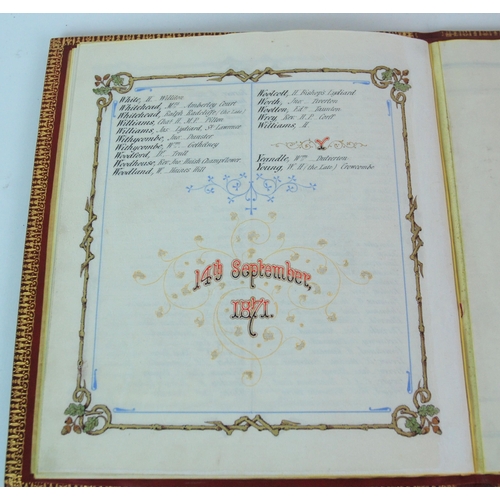 White, H. Williton
Whitehead, Mrs. Amberley Court
Whitehead, Ralph Radcliffe (the late)
Williams, Chas. H. M.P. Pilton
Williams, Jas. Lydiard St. Lawrence
Withycombe, Jno. Dunster
Withycombe, Wm. Gothelney
Woodford, Dr.
Woodhouse, Rev. Jno. Huish Champflower
Woodland, W. Haines Hill
Woolcott, H. Bishop's Lydiard
Worth, Jno.
Wootten, Edwd. Taunton
Wrey, Rev. H. B. Corff
Williams, M.
Y
Yandle, Wm. Dulverton
Young, W. H. (the Late) Crowcombe
14th September,
1871.